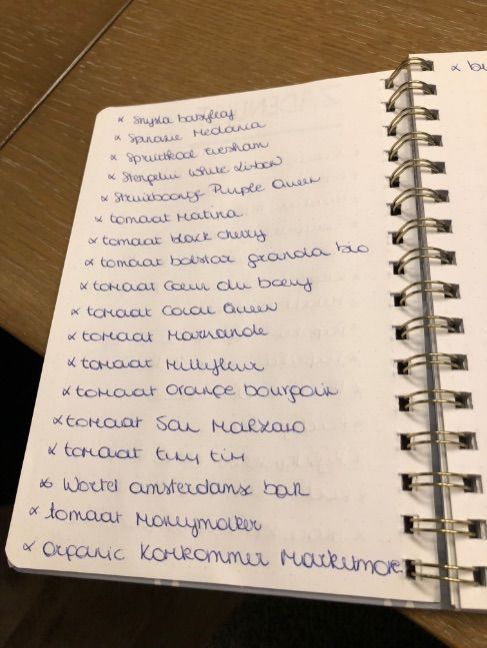 × Snijsla babyleaf
× Spinazie Medania
× Spruitkool Evesham
× Stengelui White Lisbon
× Struikboontje Purple Queen
× tomaat Matina
× tomaat black cherry
× tomaat bolstar granda bio
× tomaat Coeur du boeuf
× tomaat Coral Queen
× tomaat Marmande
× tomaat Millefleur
× tomaat Orange bourgoin
× tomaat San Marzano
× tomaat tiny tim
× Wortel amsterdamse bak
× tomaat Moneymaker
× Organic Komkommer Marketmore
× bu